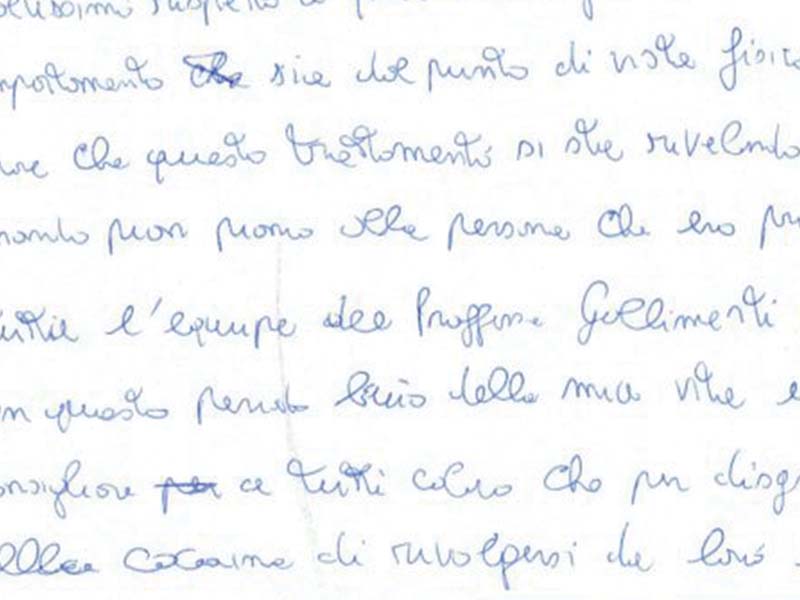 mportamento che sia dal punto di vista fisic
che questo trattamento si sta rivelando
nando pian piano alla persona che ero pr
tutta l'equipe del Proffessor Gallimberti
in questo periodo buio della mia vita e
onsigliare per a tutti coloro che per disgr
alla cocaina di rivolgersi da loro